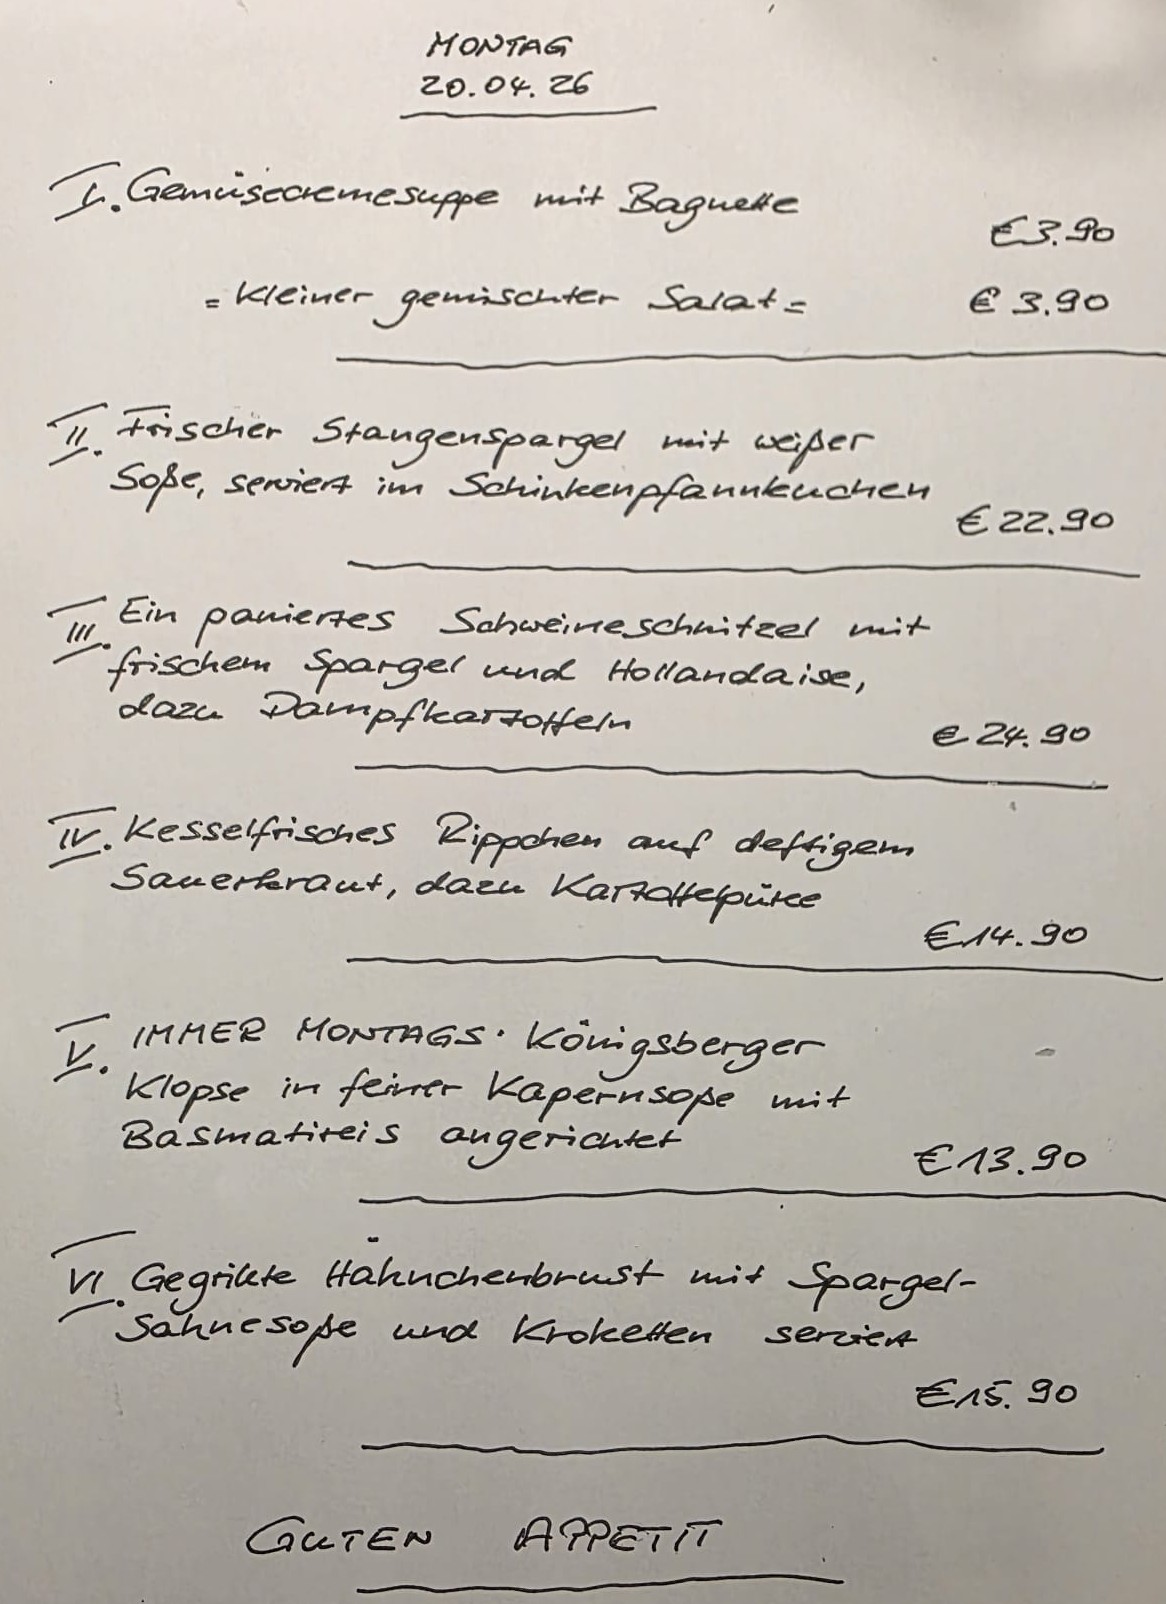 MONTAG
20.04.26
I. Gemüsecremesuppe mit Baguette
€3.90
= Kleiner gemischter Salat = € 3.90
II. Frischer Stangenspargel mit weißer
Soße, serviert im Schinkenpfannkuchen
€ 22.90
III. Ein paniertes Schweineschnitzel mit
frischem Spargel und Hollandaise,
dazu Dampfkartoffeln
€ 24.90
IV. Kesselfrisches Rippchen auf deftigem
Sauerkraut, dazu Kartoffelpüree
€ 14.90
V. IMMER MONTAGS · Königsberger
Klopse in feiner Kapernsoße mit
Basmatireis angerichtet
€ 13.90
VI. Gegrillte Hähnchenbrust mit Spargel-
Sahnesoße und Kroketten serviert
€ 15.90
GUTEN APPETIT